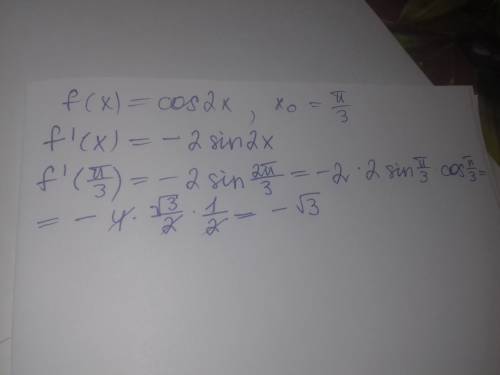 f(x) = cos2x , x₀ = π/3
f'(x) = -2 sin2x
f'(π/3) = -2 sin 2π/3 = -2 · 2 sin π/3 cos π/3 =
= - 4 · √3/2 · 1/2 = - √3